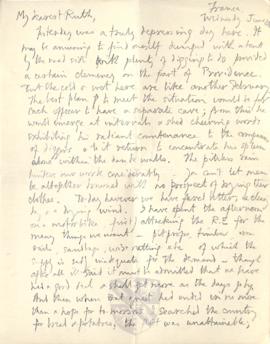 France
My dearest Ruth,
Yesterday was a truly depressing day here. It
may be amusing to find oneself dumped with a tent
by the road side with plenty of digging to do provided
a certain clemency on the part of Providence.
But the cold & wet here are like another February.
The best plan to meet the situation, would be for
each officer to have a separate cave; from this he
would emerge at intervals & shed cheering words
exhibiting a radiant countenance to the company
of diggers & to it return to concentrate his spleen
alone within the dank walls. The pitiless rain
hinders our work considerably. You can't let men
be altogether soaked with no prospect of drying their
clothes. To day however we have fared better; no clouds
a drying wind. I have spent the afternoon
on motor bike attacking the R.E. for the
many things we want – pit props, timber,
sandbags, wire netting etc of which the
supply is sadly inadequate for the demand – though
after all is said it must be admitted that we have
had a good deal & shall get more as the days go by.
And then when that quest had ended in no more
than a hope for to-morrow I searched the country
for bread & potatoes; the first was unobtainable,